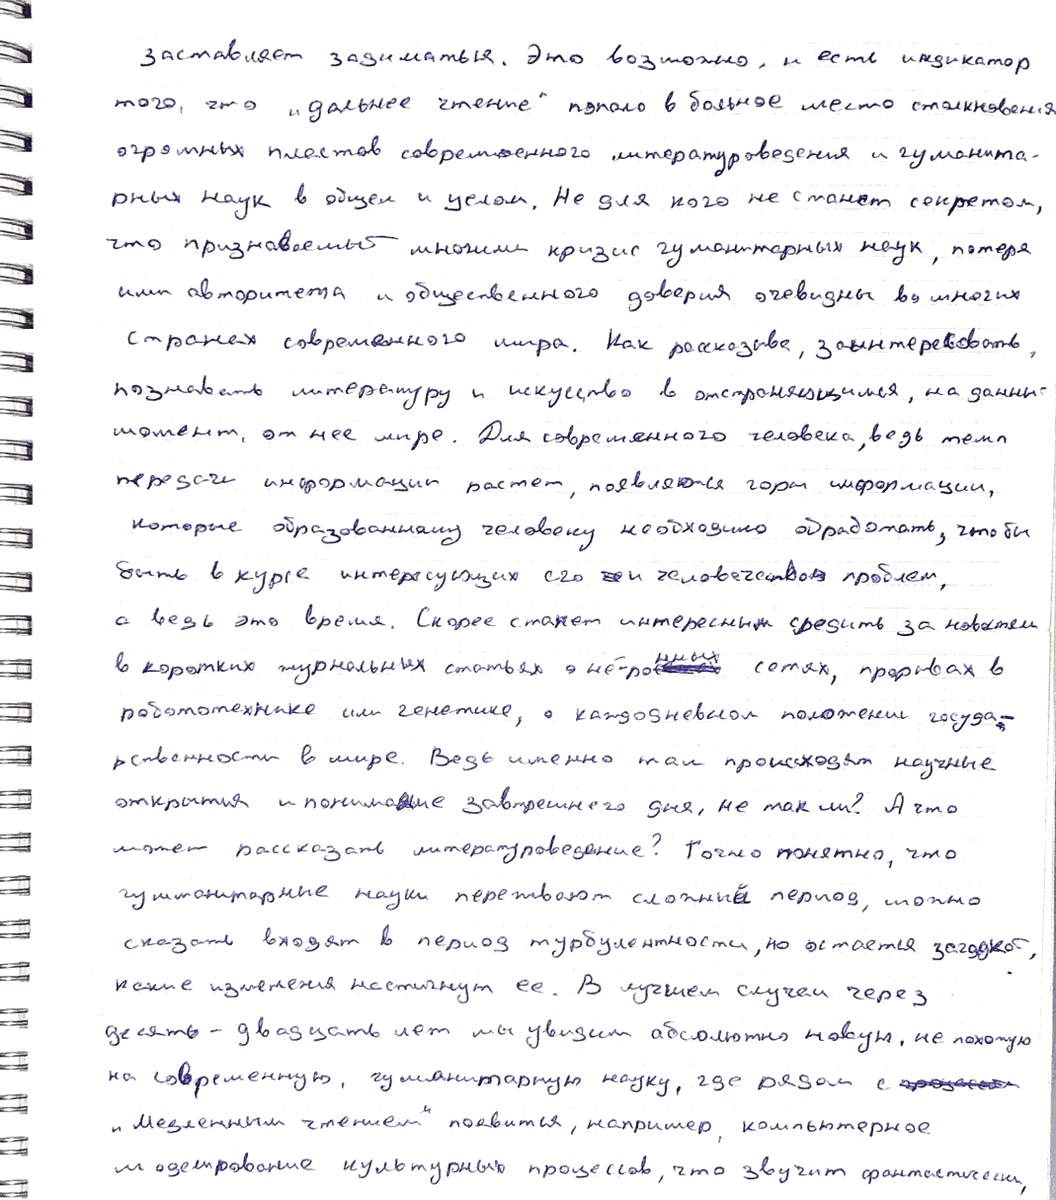 заставляет задуматься. Это возможно, и есть индикатор
того, что „дальнее чтение“ попало в больное место столкновения
огромных пластов современного литературоведения и гуманита-
рных наук в общем и целом. Не для кого не станет секретом,
что признаваемый многими кризис гуманитарных наук, потеря
ими авторитета и общественного доверия очевидны во многих
странах современного мира. Как рассказыва, заинтересовать,
познавать литературу и искусство в отстраняющимся, на данный
момент, от нее мире. Для современного человека, ведь темп
передачи информации растет, появляются горы информации,
которые образованному человеку необходимо обработать, чтобы
быть в курсе интересующих его и человечество проблем,
а ведь это время. Скорее станет интересным следить за новостями
в коротких журнальных статьях о не-ронных сетях, прорывах в
робототехнике или генетике, о каждодневном положении госуда-
рственности в мире. Ведь именно там происходят научные
открытия и понимание завтрешнего дня, не так ли? А что
может рассказать литературоведение? Точно понятно, что
гуманитарные науки переживают сложный период, можно
сказать входят в период турбулентности, но остается загадкой,
какие изменения настигнут ее. В лучшем случаи через
десять - двадцать лет мы увидим абсолютно новую, не похожую
на современную, гуманитарную науку, где рядом с
„Медленным чтением“ появится, например, компьютерное
моделирование культурных процессов, что звучит фантастически,